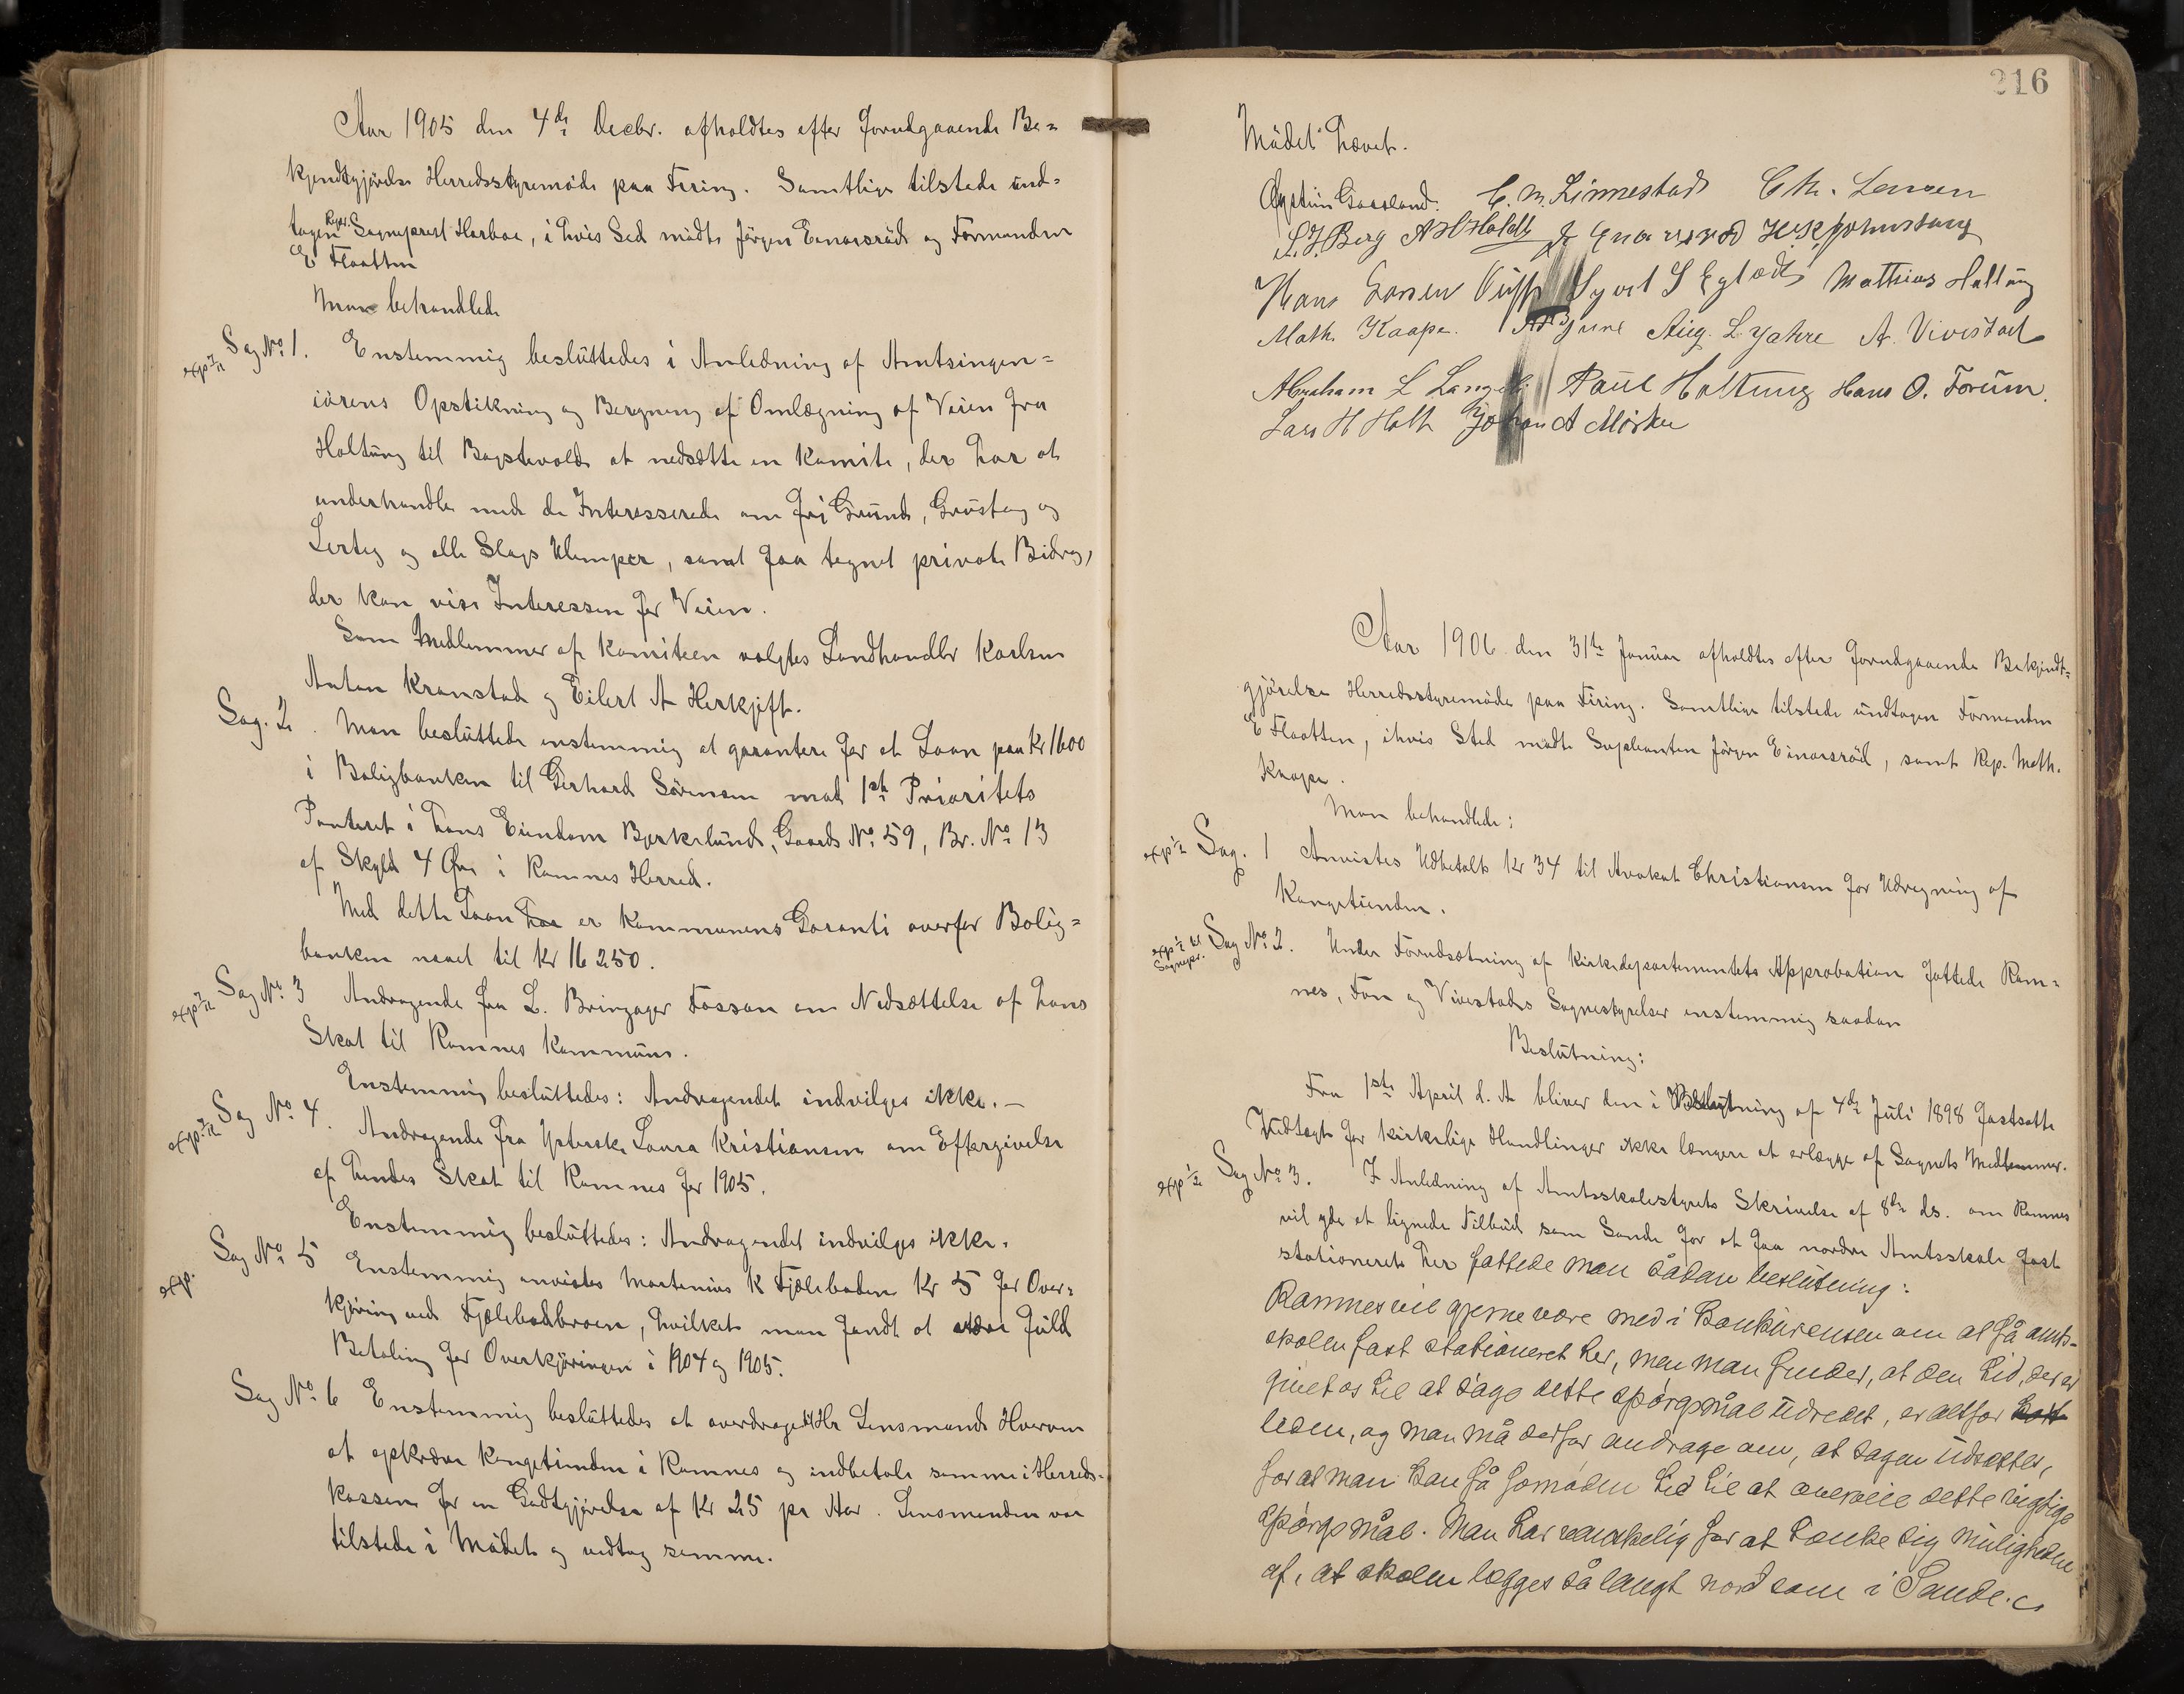 Aar 1905 den 4de Decbr. afholdtes efter forudgaaende Be=
kjendtgjörelse Herredsstyremöde paa Firing. Samtlige tilstede und=
tagen Repr. Sogneprest Harboe, i hvis Sted mödte Jörgen Einarsröd og Formanden
E Flaatten
Man behandlede
exp 7/12 Sag No. 1. Enstemmig besluttedes i Anledning af Amtsingen=
iörens Opstikning og Beregning af Omlægning af Veien fra
Holtung til Bogstevolds at nedsætte en Komite, der har at
underhandle med de Interesserede om fri Grund, Grustag og
Lertag og alle Slags Ulemper, samt faa tegnet private Bidrag,
der kan vise Interessen for Veien.
Som Medlemmer af Komiteen valgtes Landhandler Karlsen
Anton Kronstad og Eilert A Herkjift.
Sag. 2. Man besluttede enstemmig at garantere for et Laan paa Kr 1600
i Boligbanken til Gerhard Sörensen mod 1ste Prioritets
Panteret i hans Eiendom Bjerkelund, Gaards No. 59, Br. No. 13
af Skyld 4 Öre i Ramnes Herred.
Med dette Laan har er Kommunens Garanti overfor Bolig=
banken naaet til Kr 16250.
exp 7/12 Sag No. 3 Andragende fra L. Bringager Fossan om Nedsættelse af hans
Skat til Ramnes Kommune.
Enstemmig besluttedes: Andragendet indvilges ikke. —
exp 7/12 Sag No. 4. Andragende fra Ysterske Laura Kristiansen om Eftergivelse
af hendes Skat til Ramnes for 1905.
Enstemmig besluttedes: Andragendet indvilges ikke.
exp. Sag No. 5 Enstemmig anvistes Martenius K Fjælebaden Kr 5 for Over=
kjöring ved Fjælebadbroen, hvilket man fandt at være fuld
Betaling for Overkjöringen i 1904 og 1905.
Sag No. 6 Enstemmig besluttedes at overdraget Hr Lensmand Hvervn
at opkræve Kongetienden i Ramnes og indbetale samme i Herreds-
kassen for en Godtgjörelse af Kr 25 pr Aar. Lensmanden var
tilstede i Mödet og vedtog samme.
216
Mödet hævet.
Gaasland. C. M. Linnestad Chr. Larsen
L. J. Berg A H Holdt J Enarsrød
Hans Larsen Sivert S Mathias Holtung
Math. Kaape. Aug. L Jahre A. Vivestad
Abraham L Paul Holtung Hans O. Forum.
Lars H Holt Johan A Mörken
Aar 1906 den 31te Januar afholdtes efter forudgaaende Bekjendt=
gjörelse Herredsstyremöde paa Firing. Samtlige tilstede undtagen Formanden
E Flaatten, i hvis Sted mödte Supleanten Jörgen Einarsröd, samt Rep. Math.
Kaape.
Man behandlede:
exp 1/2 Sag. 1 Anvistes Udbetalt Kr 34 til Avokat Christiansen for Udregning af
Kongetienden.
exp 1/2 til Sognepr. Sag No. 2. Under Forudsætning af Kirkedepartementets Approbation fattede Ram=
nes, Fon og Vivestads Sognestyrelser enstemmig saadan
Beslutning:
Fra 1ste April d. A bliver den i Beslutning af 4de Juli 1898 fastsatte
Vedtægt for kirkelige Handlinger ikke længere at erlægge af Sognets Medlemmer.
exp 1/2 Sag No. 3. I Anledning af Amtsskolestyrets Skrivelse af 8de ds. om Ramnes
vil yde et lignede Tilbud som Sande for at faa nordre Amtsskole fast
stationeret her fattede man sådan beslutning:
Ramnes vil gjerne være med i konkurensen om at få amts-
skolen fast stationeret her, men man finder, at den tid, der er
givet os til at tage dette spörgsmål udredet, er altfor kort
leden, og man må derfor andrage om, at sagen udsættes,
for at man kan få fornöden tid til at overveie dette vigtige
spörgsmål. Man har vanskelig for at tænke sig muligheden
af, at skolen lægges så langt nord som i Sande.